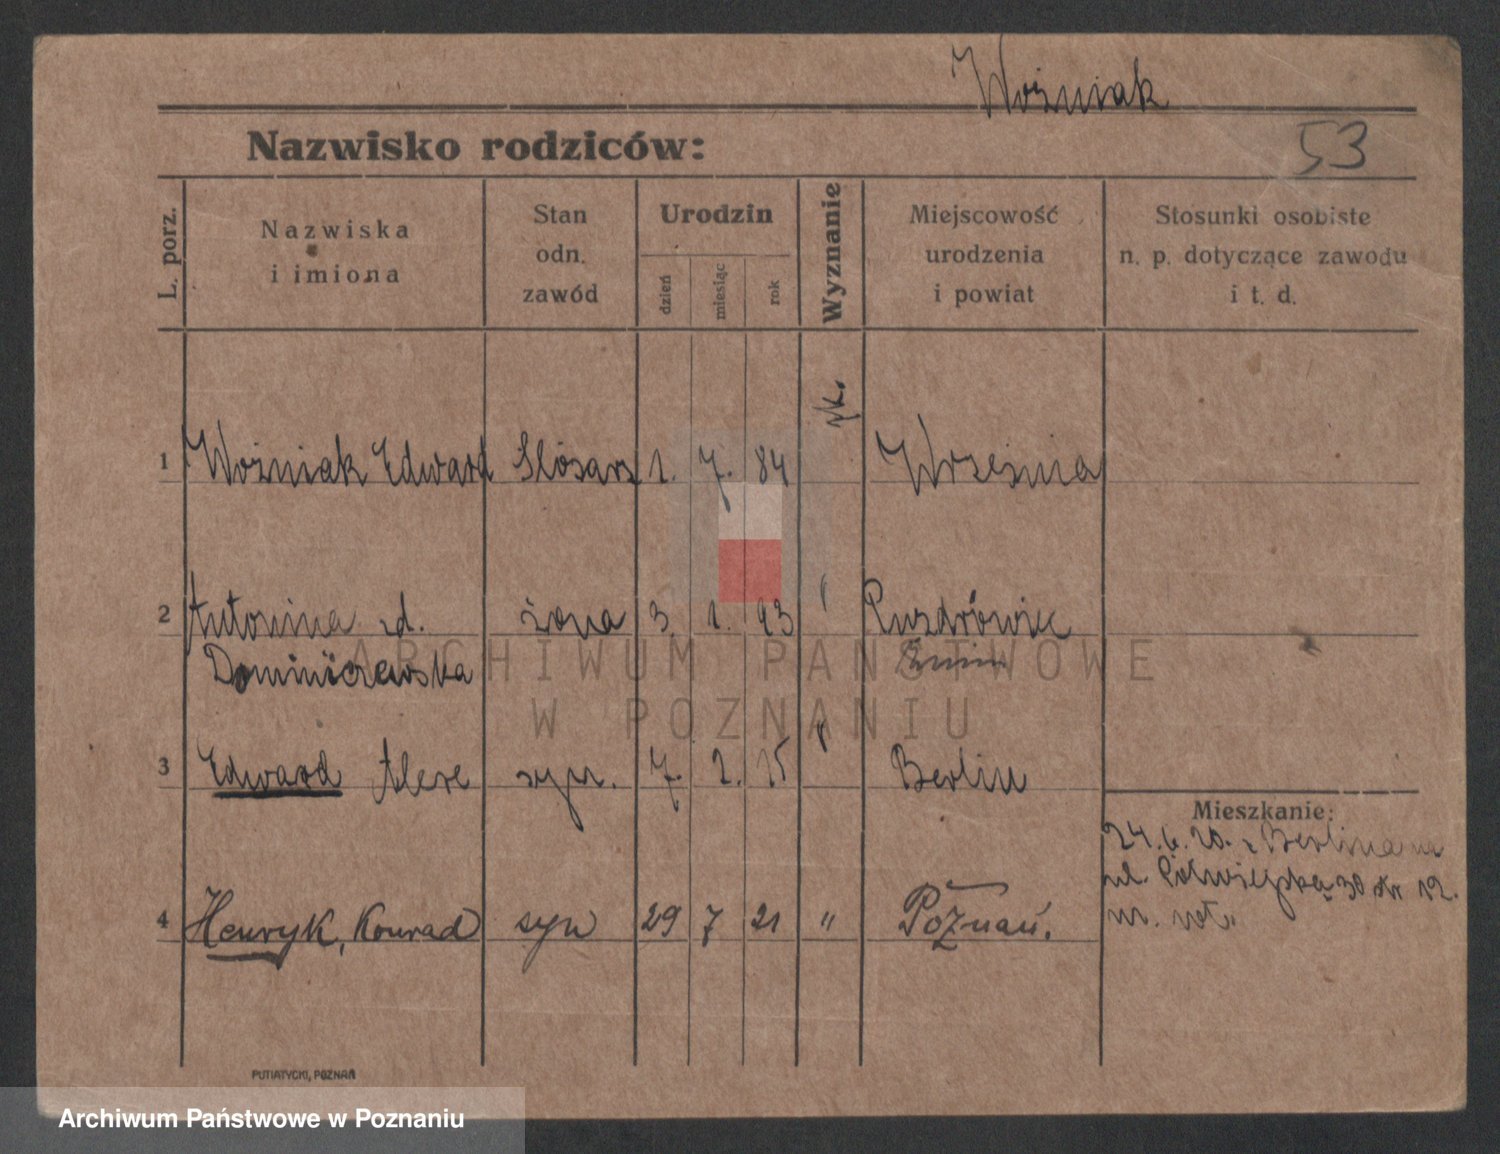 Woźniak
Nazwisko rodziców:
53
L. porz.
Nazwiska
i imiona
Stan
odn.
zawód
Urodzin
dzień
miesiąc
rok
Wyznanie
Miejscowość
urodzenia
i powiat
Stosunki osobiste
n. p. dotyczące zawodu
i t. d.
1 Woźniak Edward Slósarz 1. 7. 84 rk. Września
2 Antonina zd. żona 3. 1. 93 Puzdrówiec
Dominiczewska
ARCHIWUM PAŃSTWOWE
W POZNANIU
3 Edward syn. 7. 2. 15 " Berlin
Mieszkanie:
24. 6. 20. z Berlina na
ul. Półwiejską 30 12.
4 Henryk, Konrad syn 29 7 21 " Poznań.
PUTIATYCKI, POZNAŃ
Archiwum Państwowe w Poznaniu